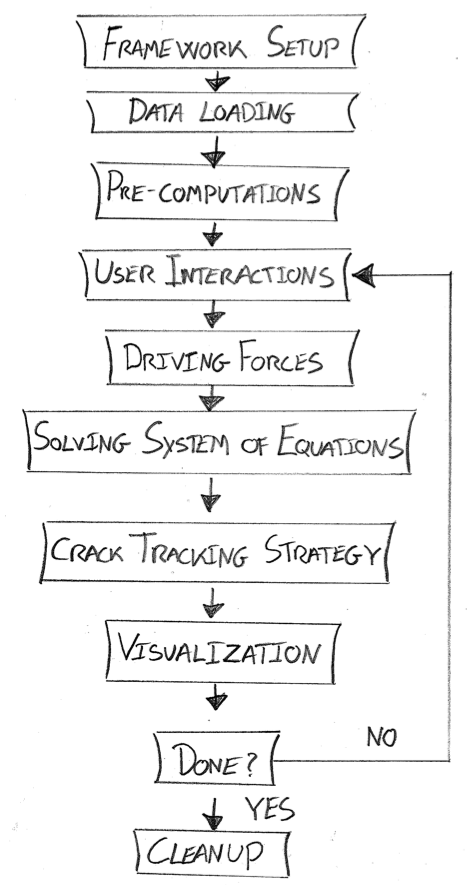 FRAMEWORK SETUP
DATA LOADING
PRE-COMPUTATIONS
USER INTERACTIONS
DRIVING FORCES
SOLVING SYSTEM OF EQUATIONS
CRACK TRACKING STRATEGY
VISUALIZATION
NO
DONE?
YES
CLEANUP